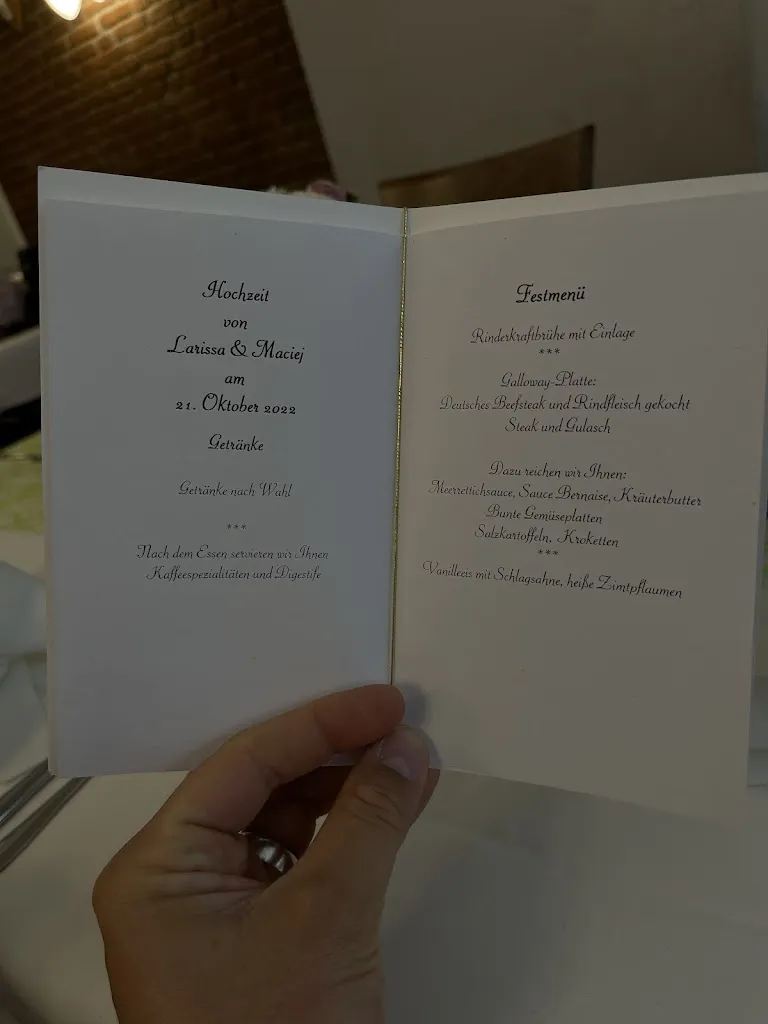 Hochzeit
von
Larissa & Maciej
am
21. Oktober 2022
Getränke
Getränke nach Wahl
***
Nach dem Essen servieren wir Ihnen
Kaffeespezialitäten und Digestife
Festmenü
Rinderkraftbrühe mit Einlage
***
Galloway-Platte:
Deutsches Beefsteak und Rindfleisch gekocht
Steak und Gulasch
Dazu reichen wir Ihnen:
Meerrettichsauce, Sauce Bernaise, Kräuterbutter
Bunte Gemüseplatten
Salzkartoffeln, Kroketten
***
Vanilleeis mit Schlagsahne, heiße Zimtpflaumen